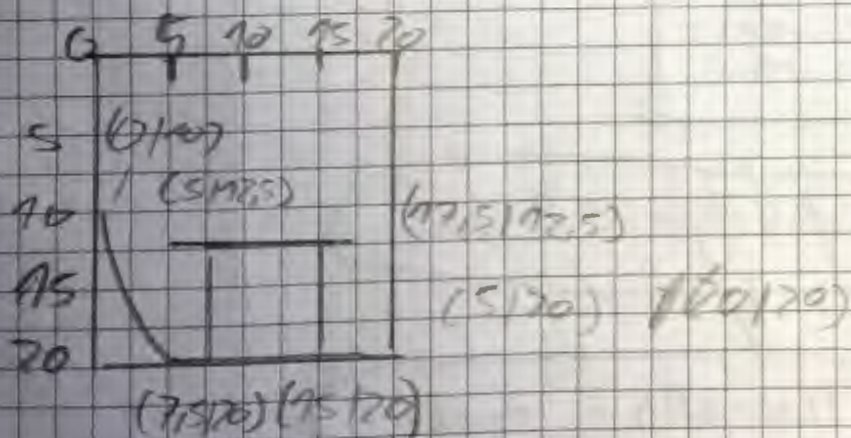 0 5 10 15 20
5 (0/10)
(5/12,5)
10 (17,5/12,5)
15 (5/20) (20/20)
20
(7,5/20) (15/20)